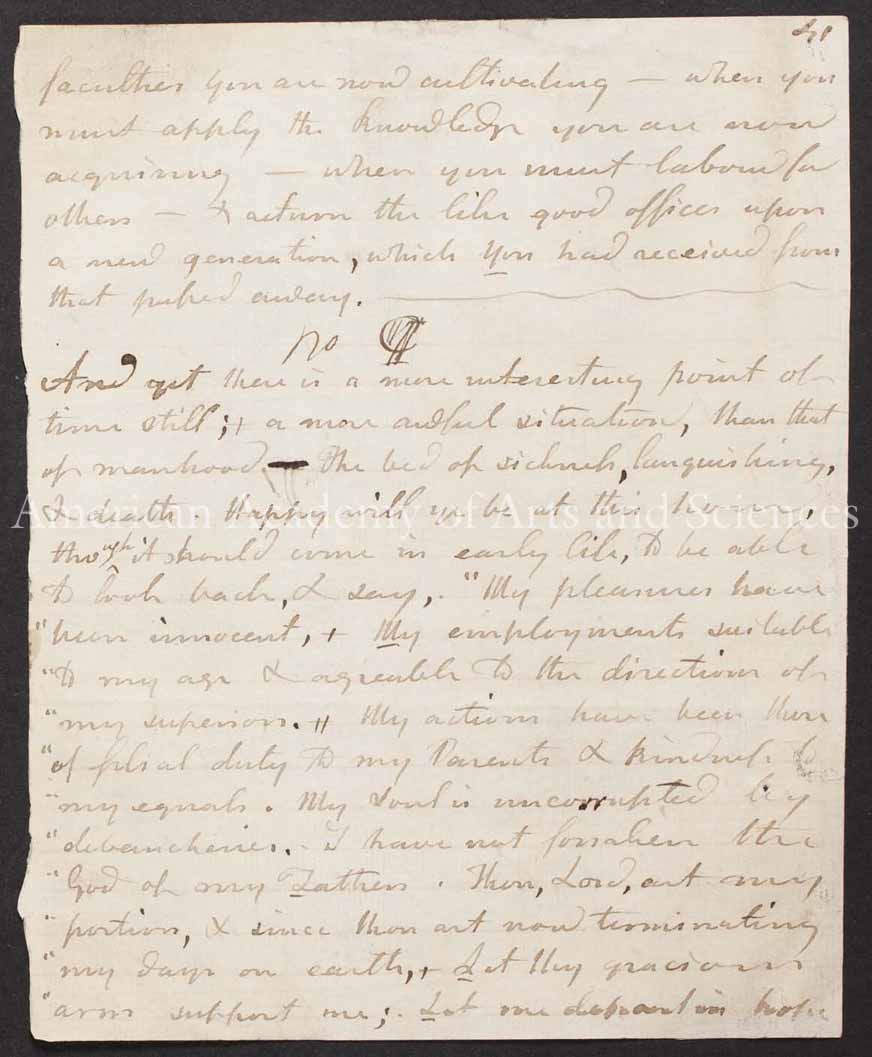 41
faculties you are now cultivating — when you
must apply the knowledge you are now
acquiring — when you must labour for
others — & return the like good offices upon
a new generation, which you had received from
that passed away.
no ¶
And yet there is a more interesting point of
time still; + a more awful situation, than that
of manhood — The bed of sickness, languishing,
& death. Happy will ye be at this hour,
though it should come in early life, to be able
to look back, & say, "My pleasures have
"been innocent, + My employments suitable
"to my age & agreable to the directions of
"my superiors. My actions have been those
"of filial duty to my Parents & kindness to
"my equals. My soul is uncorrupted by
"debaucheries. I have not forsaken the
"God of my Fathers. Thou, Lord, art my
"portion, & since thou art now terminating
"my days on earth, + Let thy gracious
"arm support me; Let me depart in hope
American Academy of Arts and Sciences